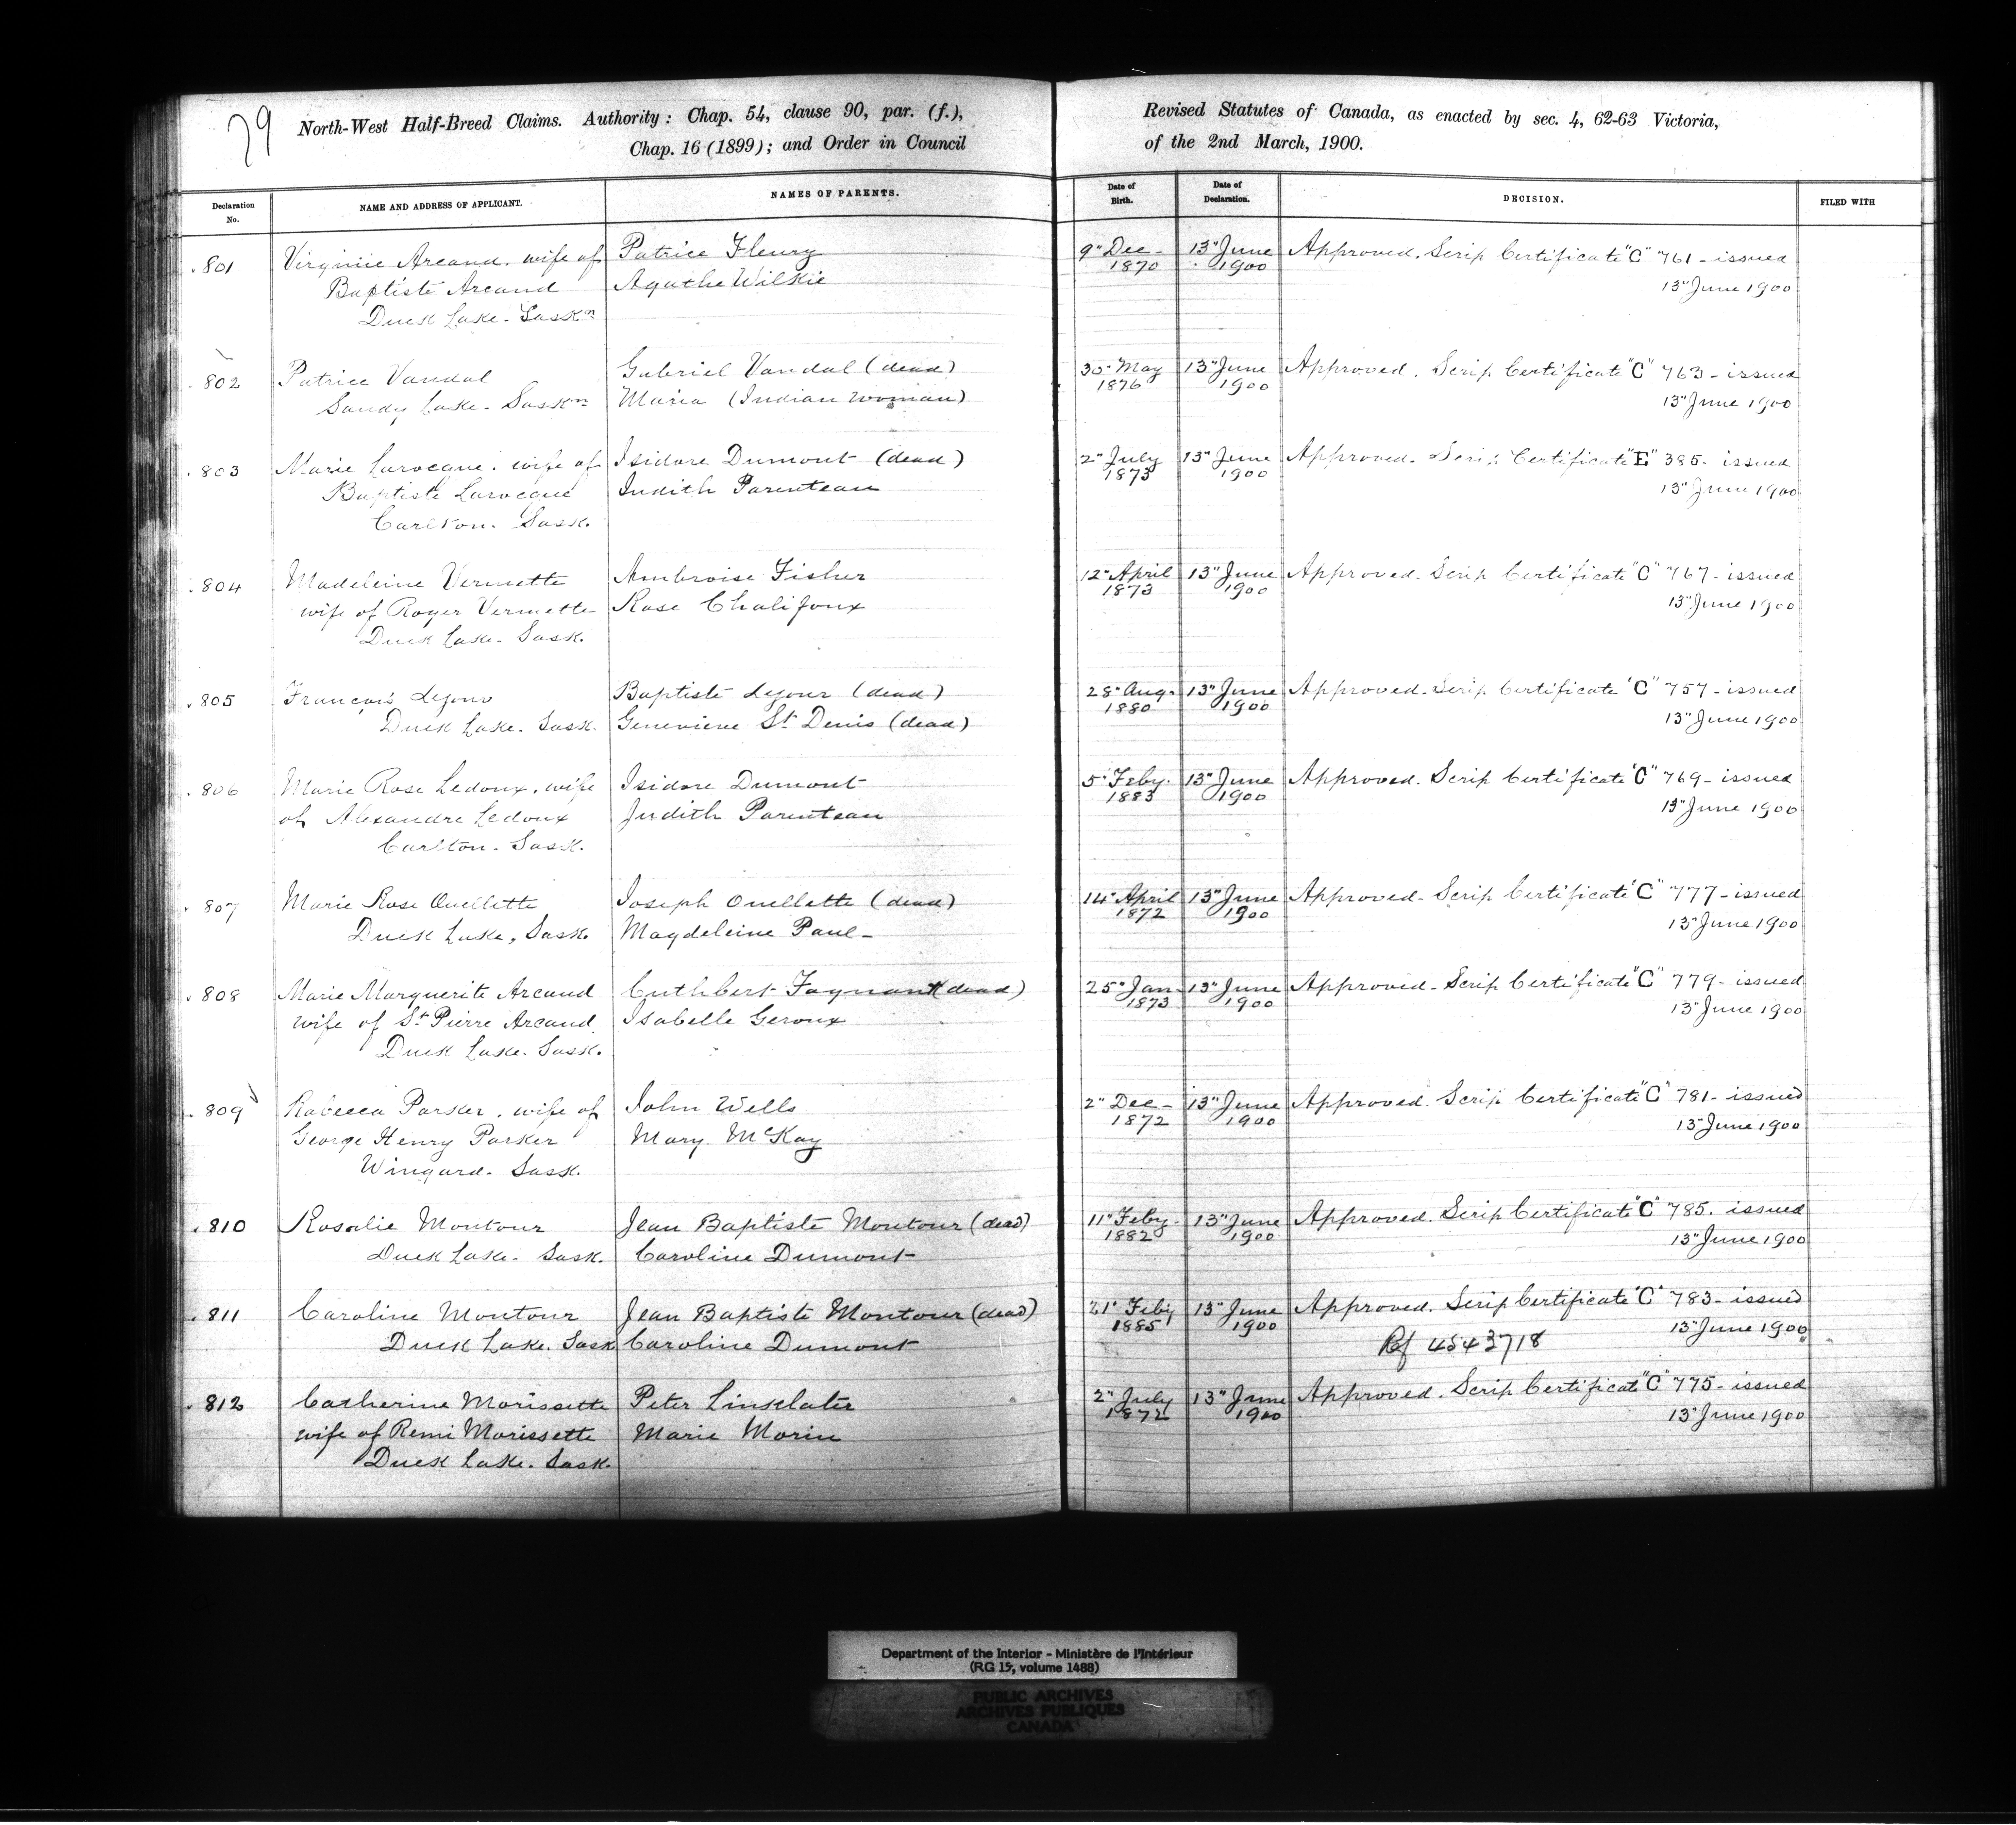 79
North-West Half-Breed Claims. Authority: Chap. 54, clause 90, par. (f.), Revised Statutes of Canada, as enacted by sec. 4, 62-63 Victoria,
Chap. 16 (1899); and Order in Council of the 2nd March, 1900.
Declaration No. NAME AND ADDRESS OF APPLICANT. NAMES OF PARENTS. Date of Birth. Date of Declaration. DECISION. FILED WITH
801 Virginie Arcand. wife of Patrice Fleury 9" Dec - 13" June Approved. Scrip Certificate "C" 761 - issued
Baptiste Arcand Agathe Wilkie 1870 1900 13" June 1900
Duck Lake - Saskn
802 Patrice Vandal Gabriel Vandal (dead) 30 May 13" June Approved. Scrip Certificate "C" 763 - issued
Sandy Lake - Saskn Maria (Indian woman) 1876 1900 13" June 1900
803 Marie Larocque. wife of Isidore Dumont (dead) 2" July 13" June Approved. Scrip Certificate "E" 385 - issued
Baptiste Larocque Judith Parenteau 1873 1900 13" June 1900
Carlton. Sask.
804 Madeleine Vermette Ambroise Fisher 12" April 13" June Approved. Scrip Certificate "C" 767 - issued
wife of Roger Vermette Rose Chalifoux 1873 1900 13" June 1900
Duck Lake - Sask.
805 François Lejour Baptiste Lejour (dead) 28" Aug. 13" June Approved. Scrip Certificate "C" 757 - issued
Duck Lake. Sask. Genevieve St Denis (dead) 1880 1900 13" June 1900
806 Marie Rose Ledoux, wife Isidore Dumont 5" Feby. 13" June Approved. Scrip Certificate "C" 769 - issued
of Alexandre Ledoux Judith Parenteau 1883 1900 13" June 1900
Carlton - Sask.
807 Marie Rose Ouellette Joseph Ouellette (dead) 14" April 13" June Approved - Scrip Certificate "C" 777 - issued
Duck Lake, Sask. Magdeleine Paul - 1872 1900 13" June 1900
808 Marie Marguerite Arcand Cuthbert Faynant (dead) 25" Jan 13" June Approved - Scrip Certificate "C" 779 - issued
wife of St Pierre Arcand Isabelle Geroux 1873 1900 13" June 1900
Duck Lake. Sask.
809 Rabecca Parker. wife of John Wells 2" Dec - 13" June Approved. Scrip Certificate "C" 781 - issued
George Henry Parker Mary McKay 1872 1900 13" June 1900
Wingard - Sask.
810 Rosalie Montour Jean Baptiste Montour (dead) 11" Feby - 13" June Approved. Scrip Certificate "C" 785. issued
Duck Lake - Sask. Caroline Dumont 1882 1900 13" June 1900
811 Caroline Montour Jean Baptiste Montour (dead) 21" Feby 13" June Approved. Scrip Certificate "C" 783 - issued
Duck Lake. Sask Caroline Dumont 1885 1900 13" June 1900
Rf 4543718
812 Catherine Morissette Peter Linklater 2" July 13" June Approved. Scrip Certificate "C" 775 - issued
wife of Remi Morissette Marie Morin 1872 1900 13" June 1900
Duck Lake. Sask.
Department of the Interior - Ministère de l'Intérieur
(RG 15, volume 1488)
PUBLIC ARCHIVES
ARCHIVES PUBLIQUES
CANADA